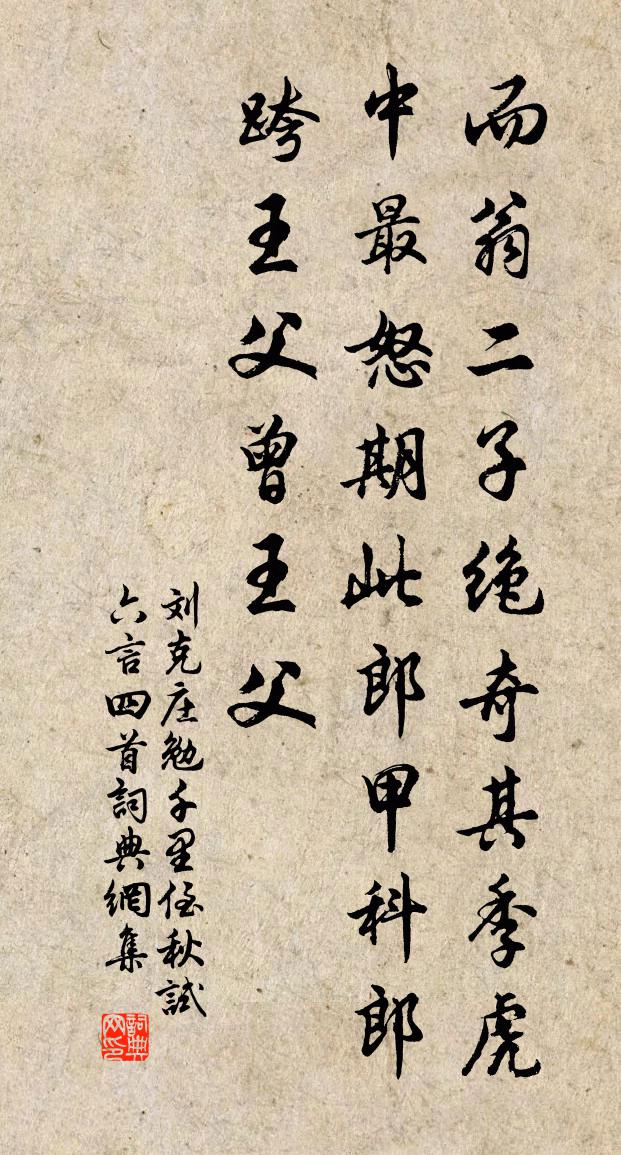 而翁二子绝奇其季虎
中最怒期此郎甲科郎
跨王父曾王父
刘克庄勉千里侄秋試
六言四首詞典網集
詞典网印